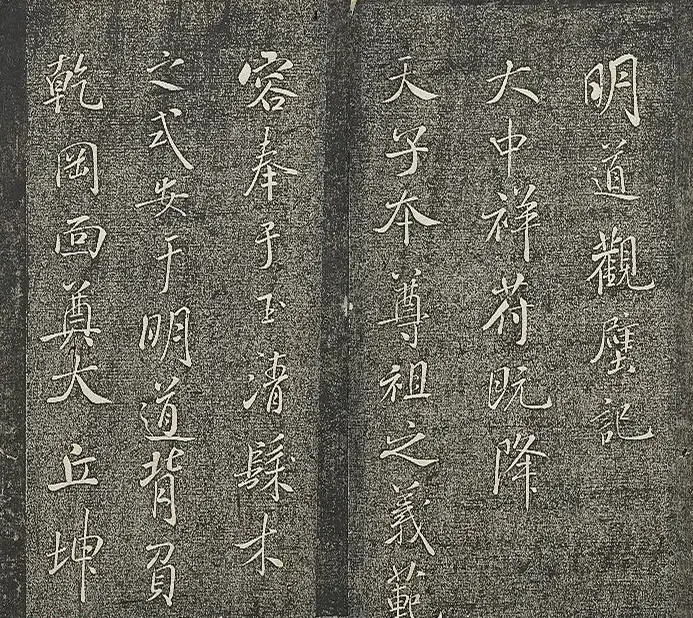 明道觀壁記
大中祥苻既降
天子本尊祖之義範
容奉于玉清髹木
之式安于明道背負
乾岡面奠大丘坤